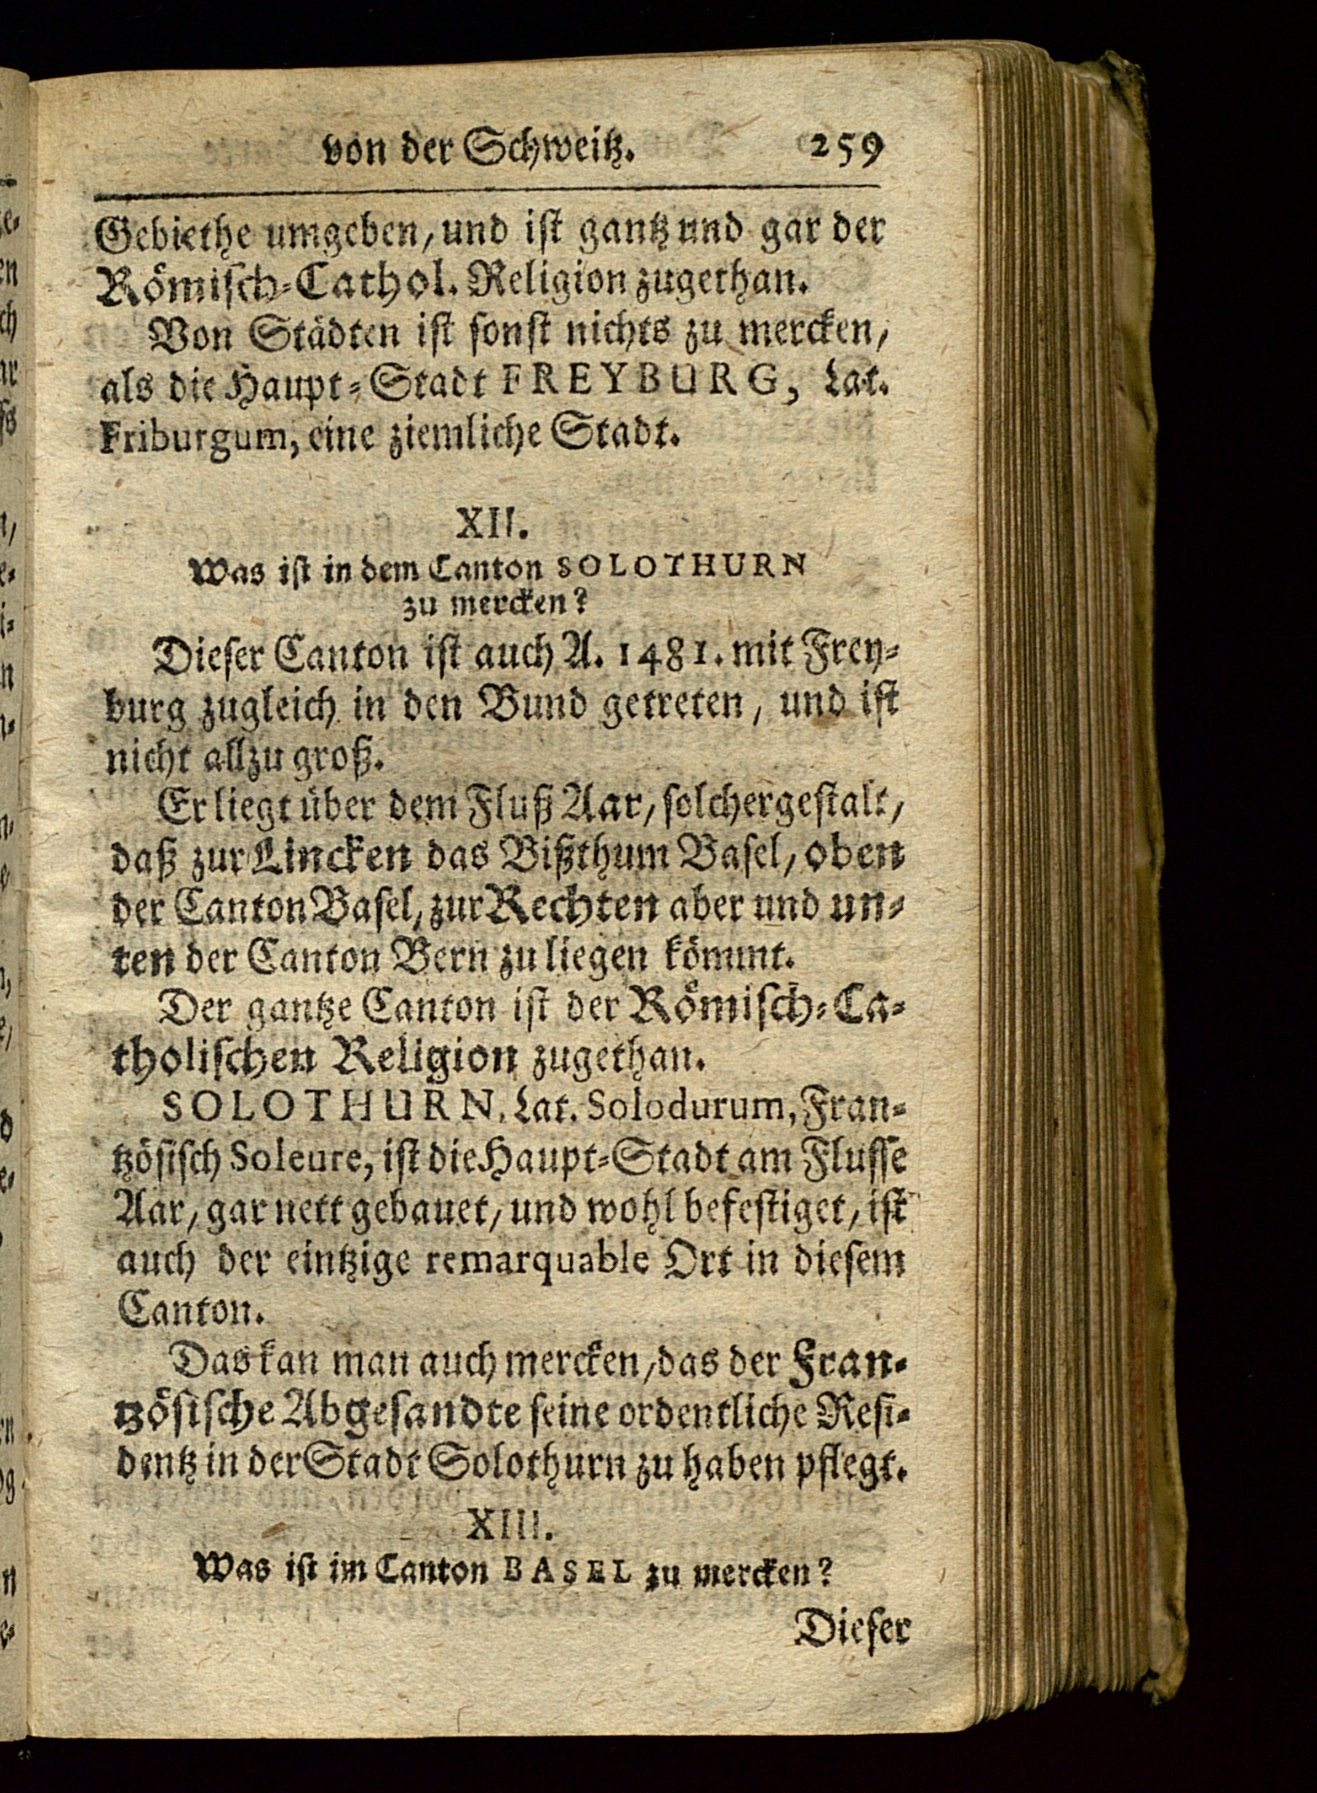 von der Schweitz. 259
Gebiethe umgeben, und ist gantz und gar der
Römisch-Cathol. Religion zugethan.
Von Städten ist sonst nichts zu mercken,
als die Haupt-Stadt FREYBURG, Lat.
Friburgum, eine ziemliche Stadt.
XII.
Was ist in dem Canton SOLOTHURN
zu mercken?
Dieser Canton ist auch A. 1481. mit Frey-
burg zugleich in den Bund getreten, und ist
nicht allzu groß.
Er liegt über dem Fluß Aar, solchergestalt,
daß zur Lincken das Bißthum Basel, oben
der Canton Basel, zur Rechten aber und un-
ten der Canton Bern zu liegen kömmt.
Der gantze Canton ist der Römisch-Ca-
tholischen Religion zugethan.
SOLOTHURN, Lat. Solodurum, Fran-
tzösisch Soleure, ist die Haupt-Stadt am Flusse
Aar, gar nett gebauet, und wohl befestiget, ist
auch der eintzige remarquable Ort in diesem
Canton.
Das kan man auch mercken, das der Fran-
tzösische Abgesandte seine ordentliche Resi-
dentz in der Stadt Solothurn zu haben pflegt.
XIII.
Was ist im Canton BASEL zu mercken?
Dieser